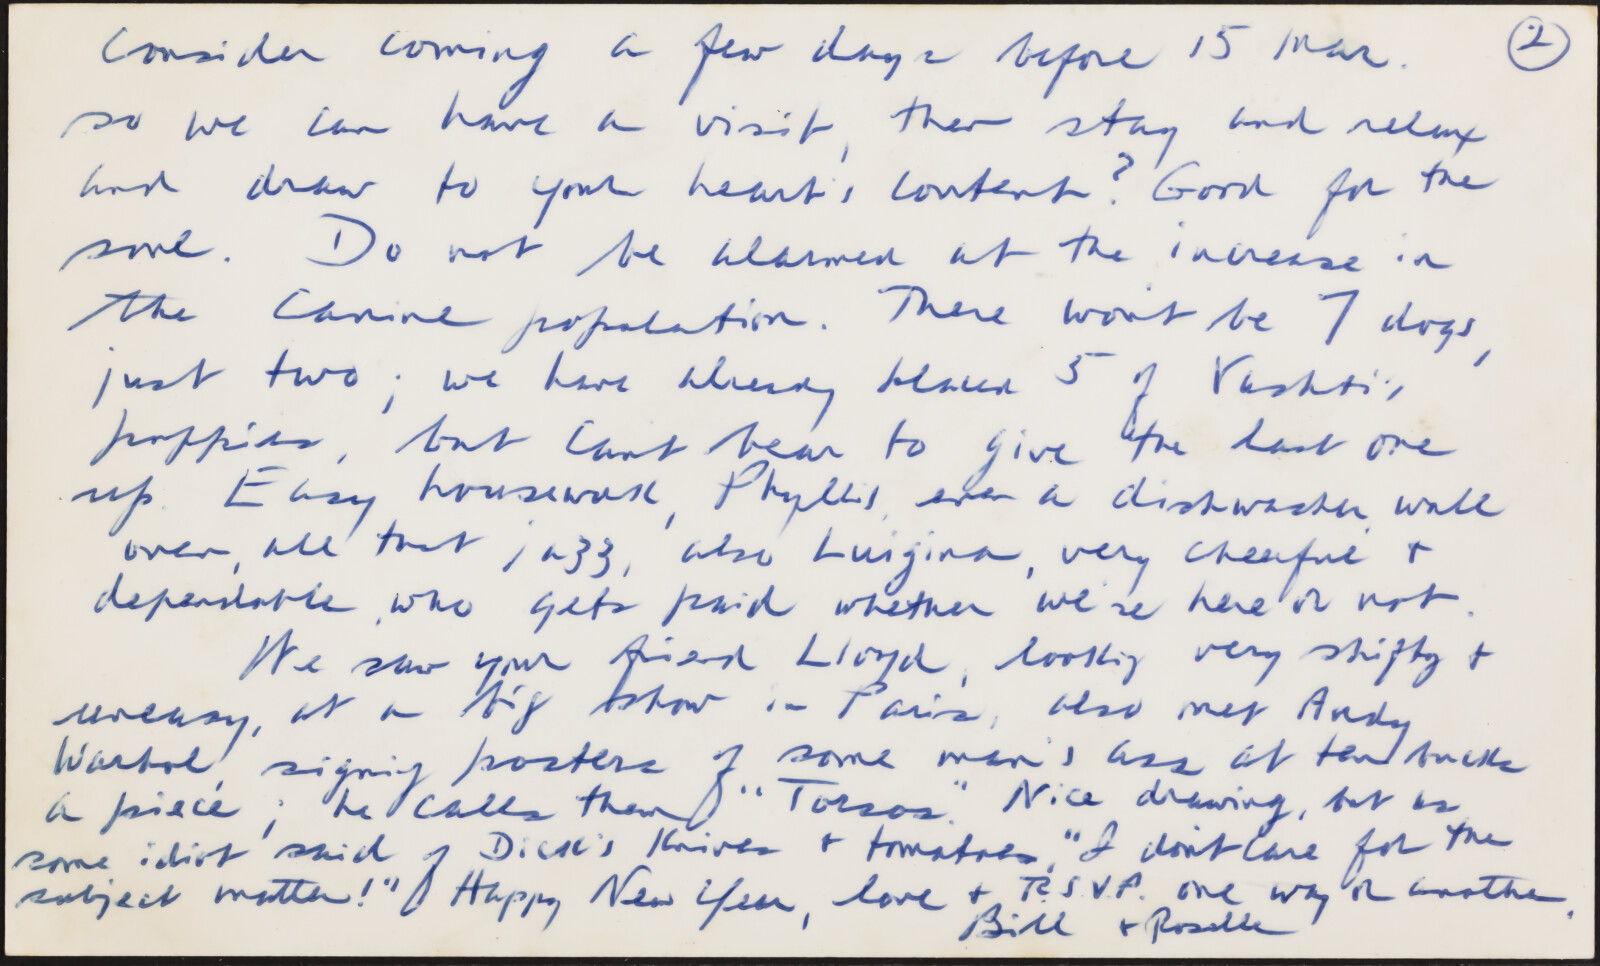 ②
Consider coming a few days before 15 Mar.
so we can have a visit, then stay and relax
and draw to your heart's content? Good for the
soul. Do not be alarmed at the increase in
the canine population. There won't be 7 dogs,
just two; we have already placed 5 of Vashti's
puppies, but can't bear to give the last one
up. Easy housework, Phyllis, even a dishwasher, wall
oven, all that jazz, also Luigina, very cheerful +
dependable, who gets paid whether we're here or not.
We saw your friend Lloyd, looking very shifty +
uneasy, at a big show in Paris, also met Andy
Warhol, signing posters of some man's ass at ten bucks
a piece; he calls them "Torsos." Nice drawing, but as
some idiot said of Dick's knives + tomatoes, "I don't care for the
subject matter!" Happy New Year, love + R.S.V.P. one way or another,
Bill + Roselle